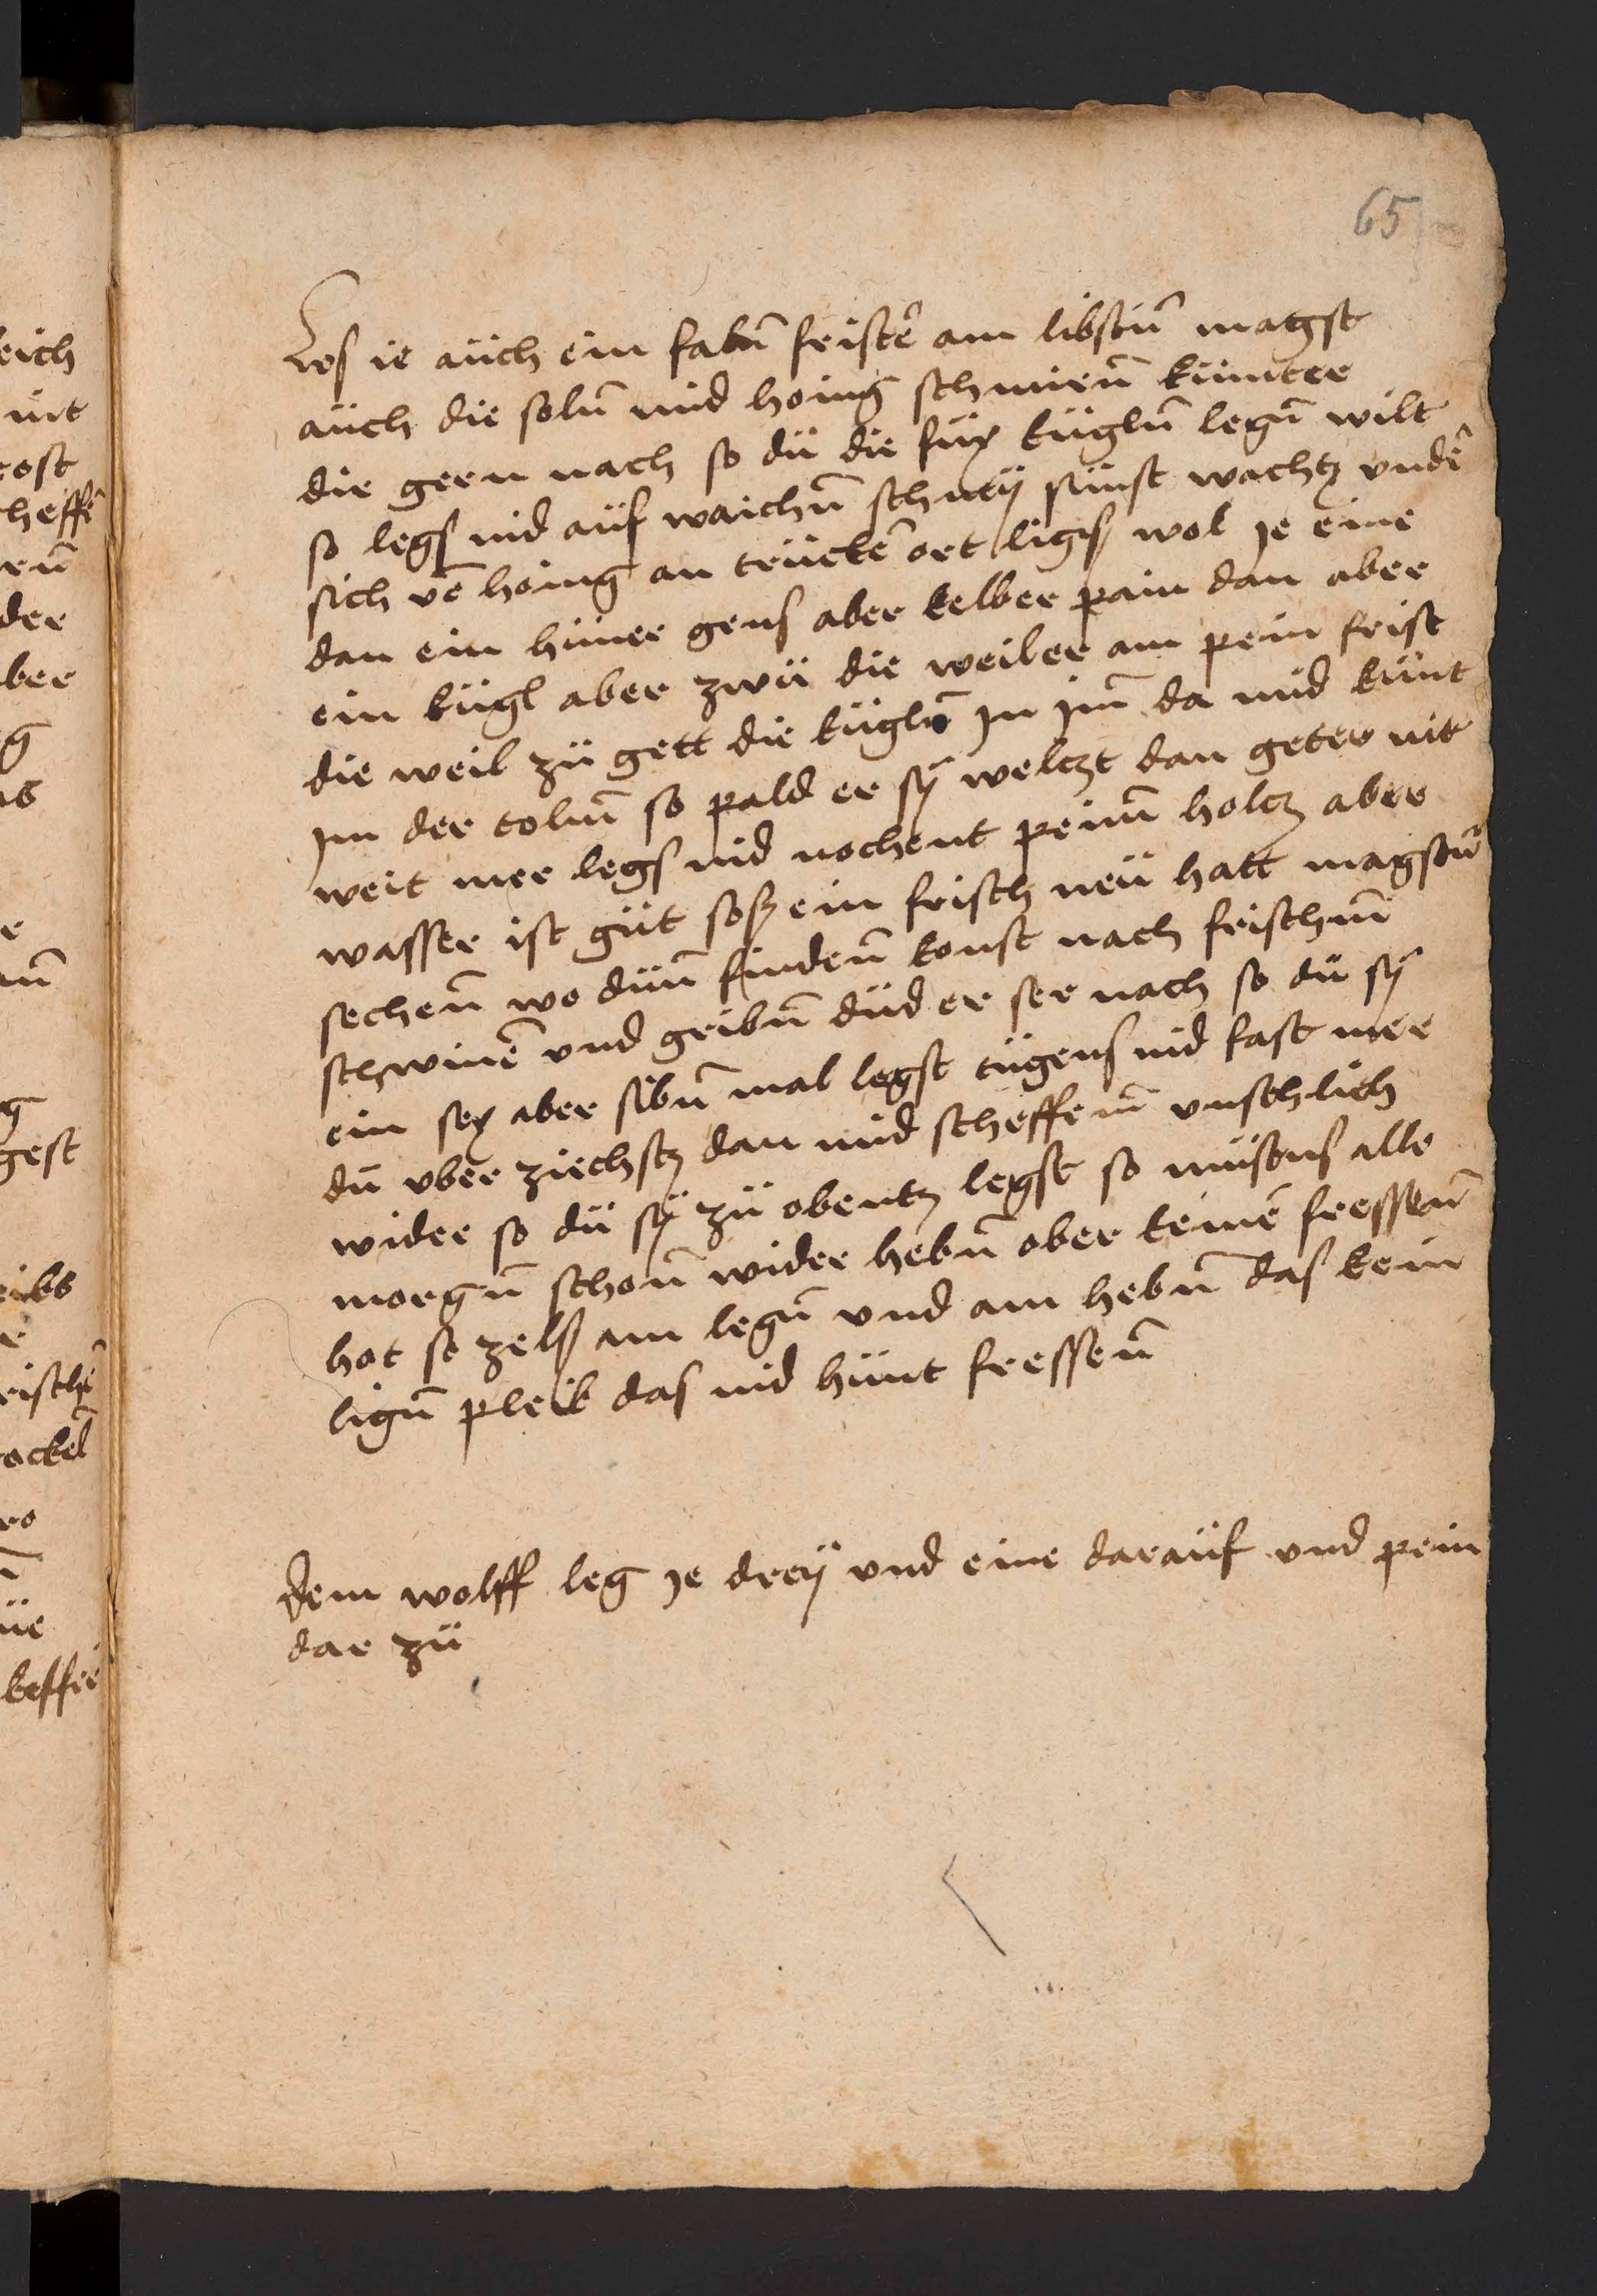 65
Les ie aüch ein fabn̄ fristē am libstūn̄ magst
aüch die soln̄ mid honig schmirn̄ kümter
die gern nach so dü die füx kügln̄ legn̄ wilt
so legs nid aüf waichn̄ schney sünst wachtz vndē
sich vē honig an trückē ort ligß wol Je eine
dan ein hüner gens aber kelber pain dan aber
ein kügl aber zwü die weiler am pein frist
die weil zü gett die kügln̄ In Im̄ da mid künt
Im der toln̄ so pald er sÿ welczt dan geter nit
weit mer legs nid nochent peim̄ holcz aber
wasser ist güt soß ein frisch neü hatt magstūn̄
sechen̄ wo dün̄ finden̄ konst nach frischn̄
schwinē vnd gribn̄ düd er ser nach so dü sÿ
ein sex aber sibn̄ mal legst tügens nid fast mer
dü vber ziechstz dan mid scheffem̄ vnschlich
wider so dü sÿ zü obentz legst so müstns alle
morgn̄ schon̄ wider hebn̄ ober keinē fressen̄
hot so zelß am legn̄ vnd am hebn̄ das kein
lign̄ pleib das nid hünt fressen̄
Dem wolff leg Je dreÿ vnd eine daraüf vnd pein
dar zü